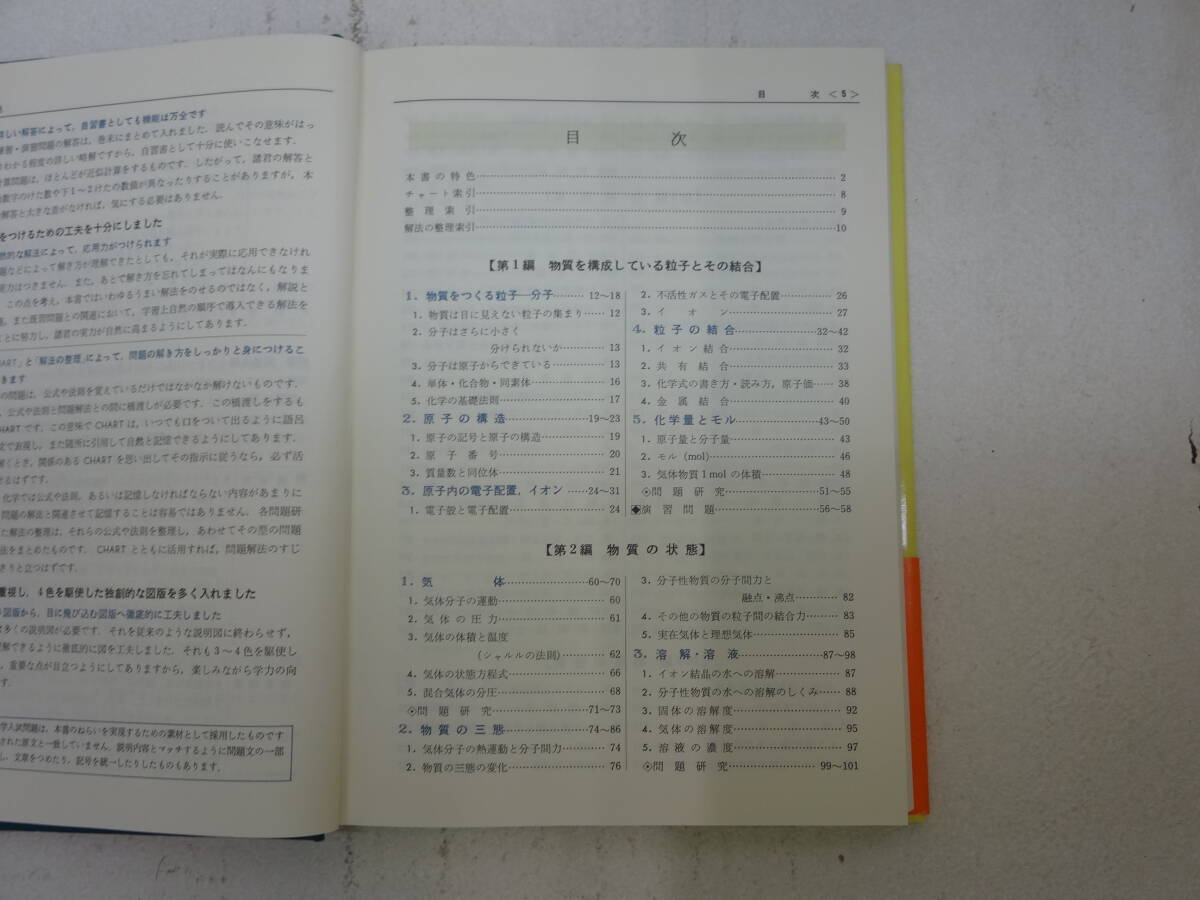 詳しい解答によって，自習書としても機能は万全です
練習・演習問題の解答は，巻末にまとめて入れました．読んでその意味がはっ
わかる程度の詳しい略解ですから，自習書として十分に使いこなせます．
計算問題は，ほとんどが近似計算をするものです．したがって，諸君の解答と
数字のけた数や下1～2けたの数値が異なったりすることがありますが，本
の解答と大きな差がなければ，気にする必要はありません．
をつけるための工夫を十分にしました
然的な解法によって，応用力がつけられます
題などによって解き方が理解できたとしても，それが実際に応用できなけれ
実力はつきません．また，あとで解き方を忘れてしまってはなんにもなりま
．この点を考え，本書ではいわゆるうまい解法をのせるのではなく，解説と
，また既習問題との関連において，学習上自然の順序で導入できる解法を
ことに努力し，諸君の実力が自然に高まるようにしてあります．
HART」と「解法の整理」によって，問題の解き方をしっかりと身につけるこ
きます
の問題は，公式や法則を覚えているだけではなかなか解けないものです．
，公式や法則と問題解法との間に橋渡しが必要です．この橋渡しをするも
HARTです．この意味でCHARTは，いつでも口をついて出るように語呂
文で表現し，また随所に引用して自然と記憶できるようにしてあります．
解くとき，関係のあるCHARTを思い出してその指示に従うなら，必ず活
るはずです．
化学では公式や法則，あるいは記憶しなければならない内容があまりに
問題の解法と関連させて記憶することは容易ではありません．各問題研
た解法の整理は，それらの公式や法則を整理し，あわせてその型の問題
法をまとめたものです．CHARTとともに活用すれば，問題解法のすじ
きりと立つはずです．
重視し，4色を駆使した独創的な図版を多く入れました
図版から，目に飛び込む図版へ徹底的に工夫しました
は多くの説明図が必要です．それを従来のような説明図に終わらせず，
理解できるように徹底的に図を工夫しました．それも3～4色を駆使し
，重要な点が目立つようにしてありますから，楽しみながら学力の向
す．
学入試問題は，本書のねらいを実現するための素材として採用したものです
された原文と一致していません．説明内容とマッチするように問題文の一部
し，文章をつめたり，記号を統一したりしたものもあります．
目　次 <5>
目　次
本書の特色 2
チャート索引 8
整理索引 9
解法の整理索引 10
【第1編　物質を構成している粒子とその結合】
1. 物質をつくる粒子―分子 12～18
1. 物質は目に見えない粒子の集まり 12
2. 分子はさらに小さく
分けられないか 13
3. 分子は原子からできている 13
4. 単体・化合物・同素体 16
5. 化学の基礎法則 17
2. 原子の構造 19～23
1. 原子の記号と原子の構造 19
2. 原子番号 20
3. 質量数と同位体 21
3. 原子内の電子配置，イオン 24～31
1. 電子殻と電子配置 24
2. 不活性ガスとその電子配置 26
3. イオン 27
4. 粒子の結合 32～42
1. イオン結合 32
2. 共有結合 33
3. 化学式の書き方・読み方，原子価 38
4. 金属結合 40
5. 化学量とモル 43～50
1. 原子量と分子量 43
2. モル (mol) 46
3. 気体物質1molの体積 48
◇問題研究 51～55
◆演習問題 56～58
【第2編　物質の状態】
1. 気体 60～70
1. 気体分子の運動 60
2. 気体の圧力 61
3. 気体の体積と温度
(シャルルの法則) 62
4. 気体の状態方程式 66
5. 混合気体の分圧 68
◇問題研究 71～73
2. 物質の三態 74～86
1. 気体分子の熱運動と分子間力 74
2. 物質の三態の変化 76
3. 分子性物質の分子間力と
融点・沸点 82
4. その他の物質の粒子間の結合力 83
5. 実在気体と理想気体 85
3. 溶解・溶液 87～98
1. イオン結晶の水への溶解 87
2. 分子性物質の水への溶解のしくみ 88
3. 固体の溶解度 92
4. 気体の溶解度 95
5. 溶液の濃度 97
◇問題研究 99～101